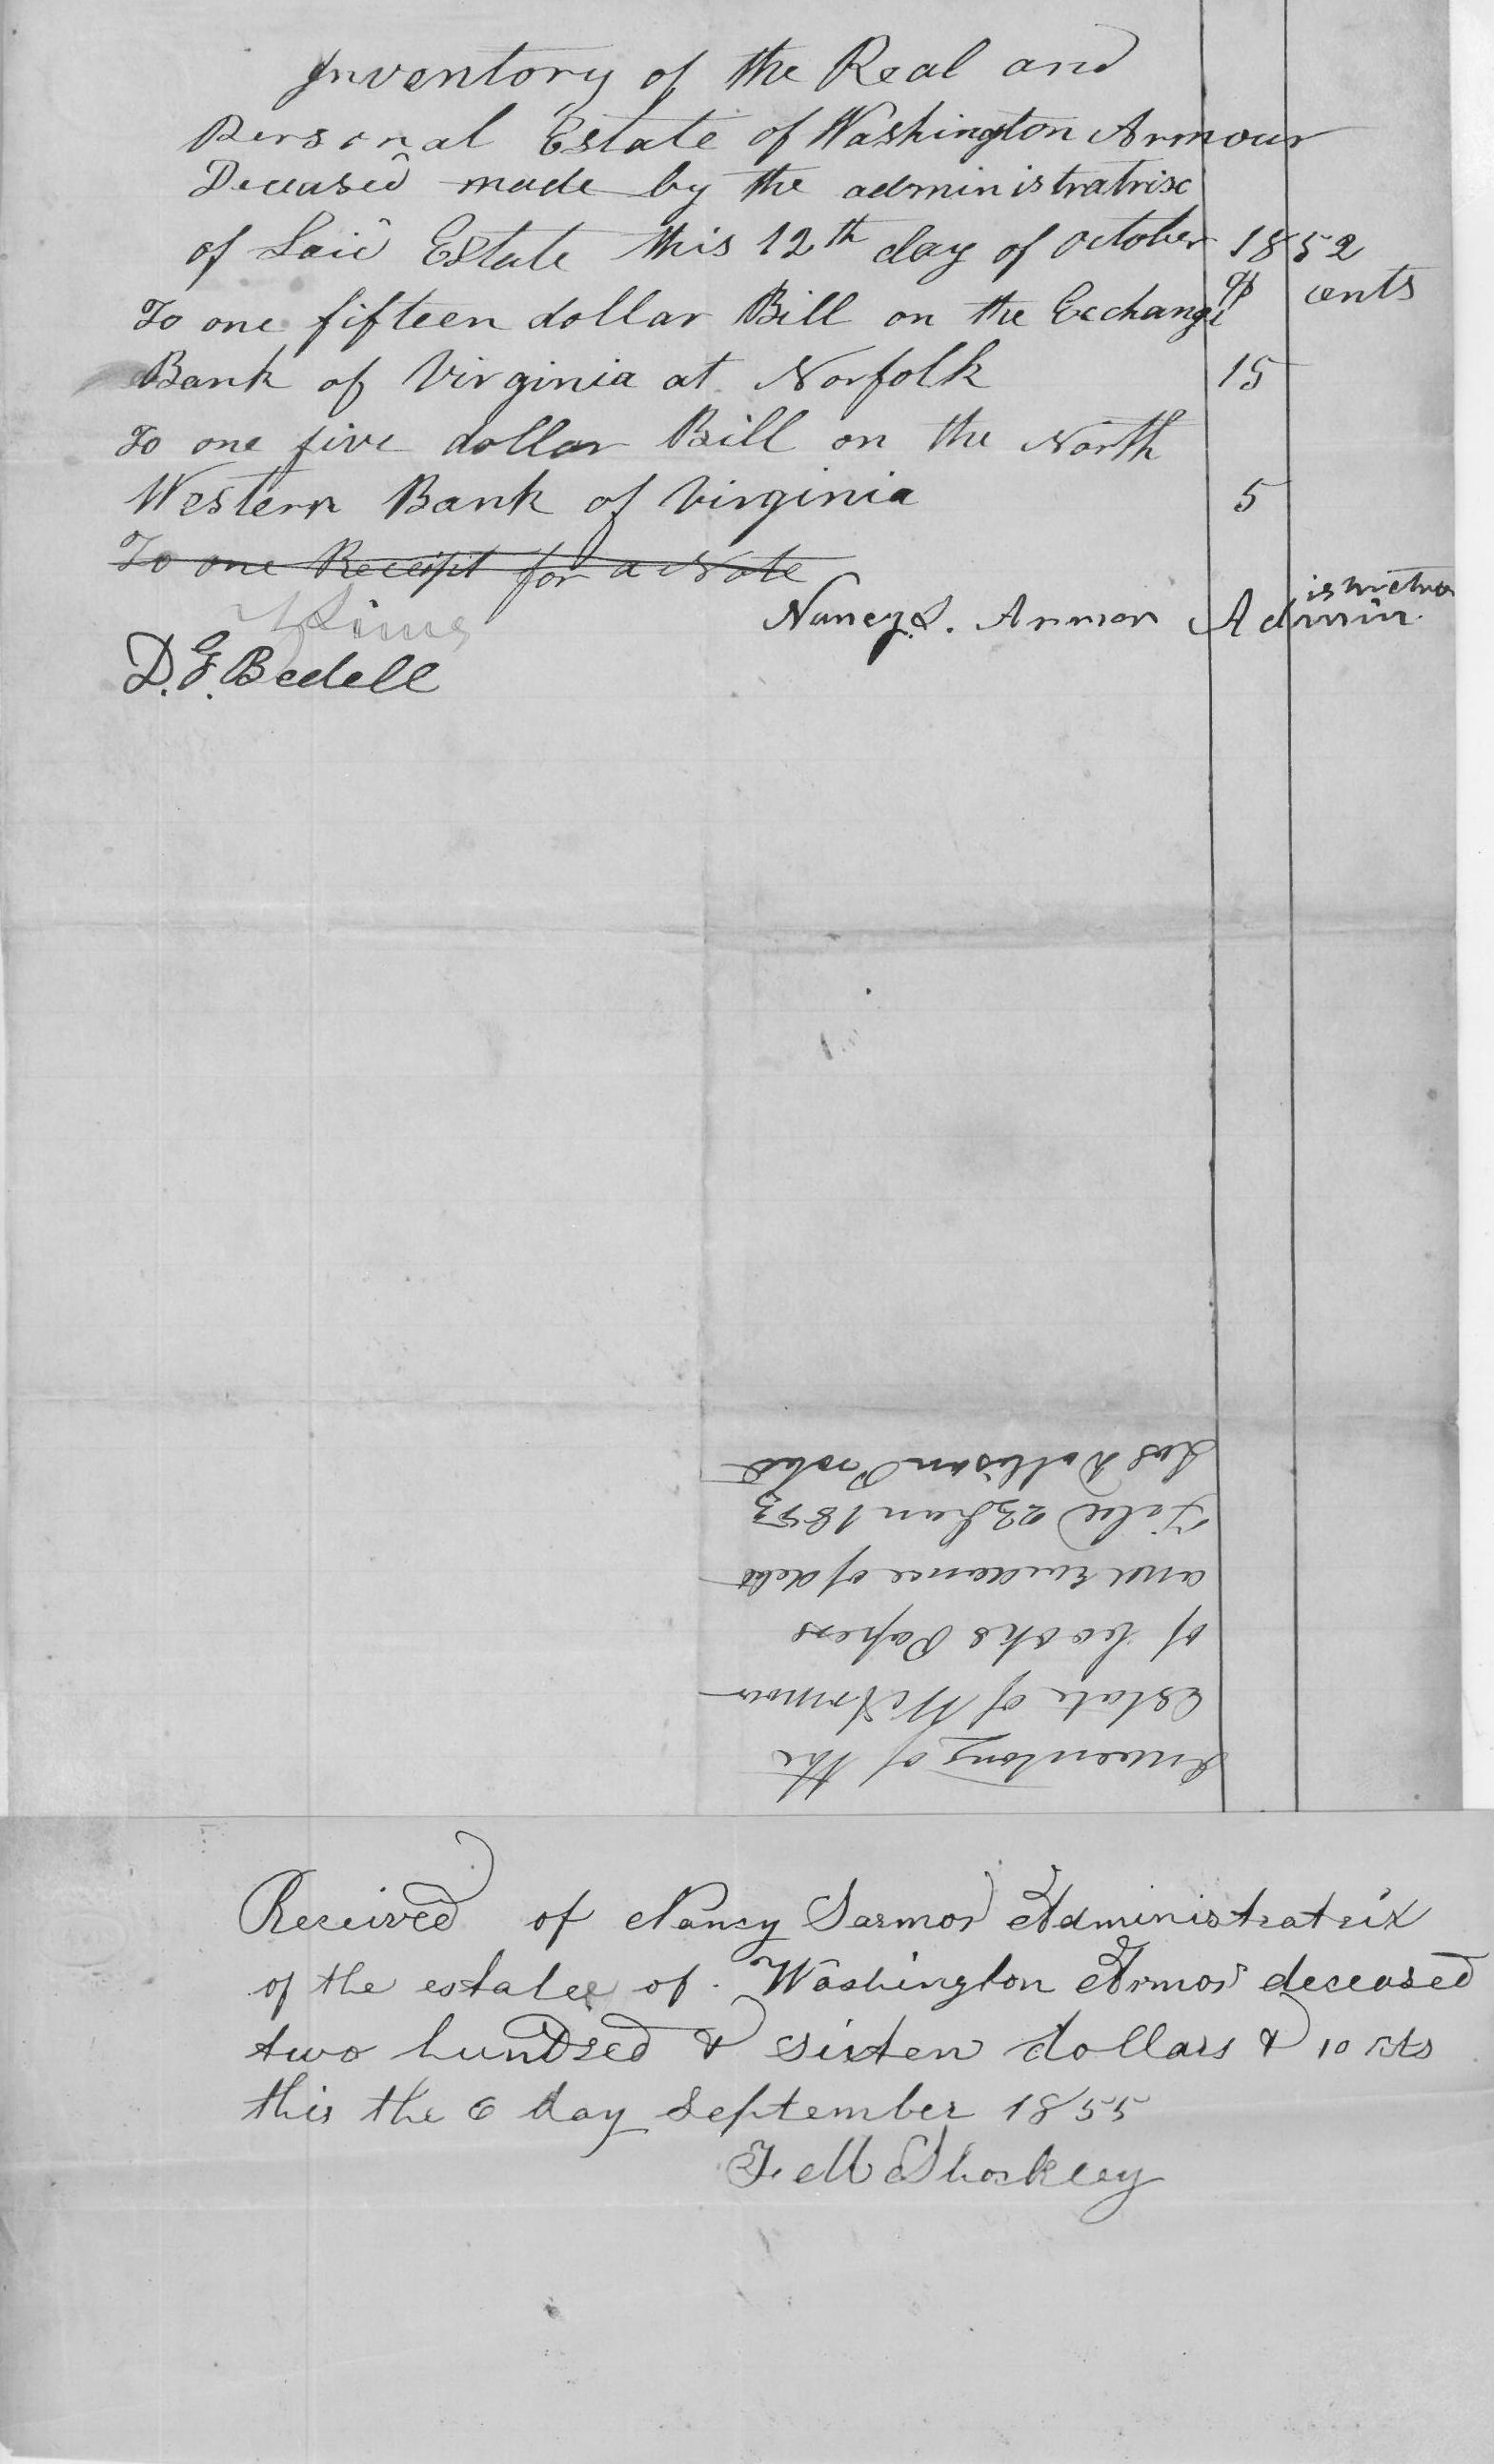 Inventory of the Real and
Personal Estate of Washington Armour
Deceased made by the administratrix
of Said Estate this 12th day of October 1852
$ cents
To one fifteen dollar Bill on the Exchange
Bank of Virginia at Norfolk 15
To one five dollar Bill on the North
Western Bank of Virginia 5
To one Receipt for a Note
Nancy S. Armor Administratrix
D. G. Bedell
Inventory of the
Estate of W Armour
of Books Papers
and Evidence of debt
Filed 23 Jan 1853
Received of Nancy Sarmor Administratrix
of the estate of Washington Armor deceased
two hundred & sixten dollars & 10 cts
this the 6 day September 1855
F. M Shockley